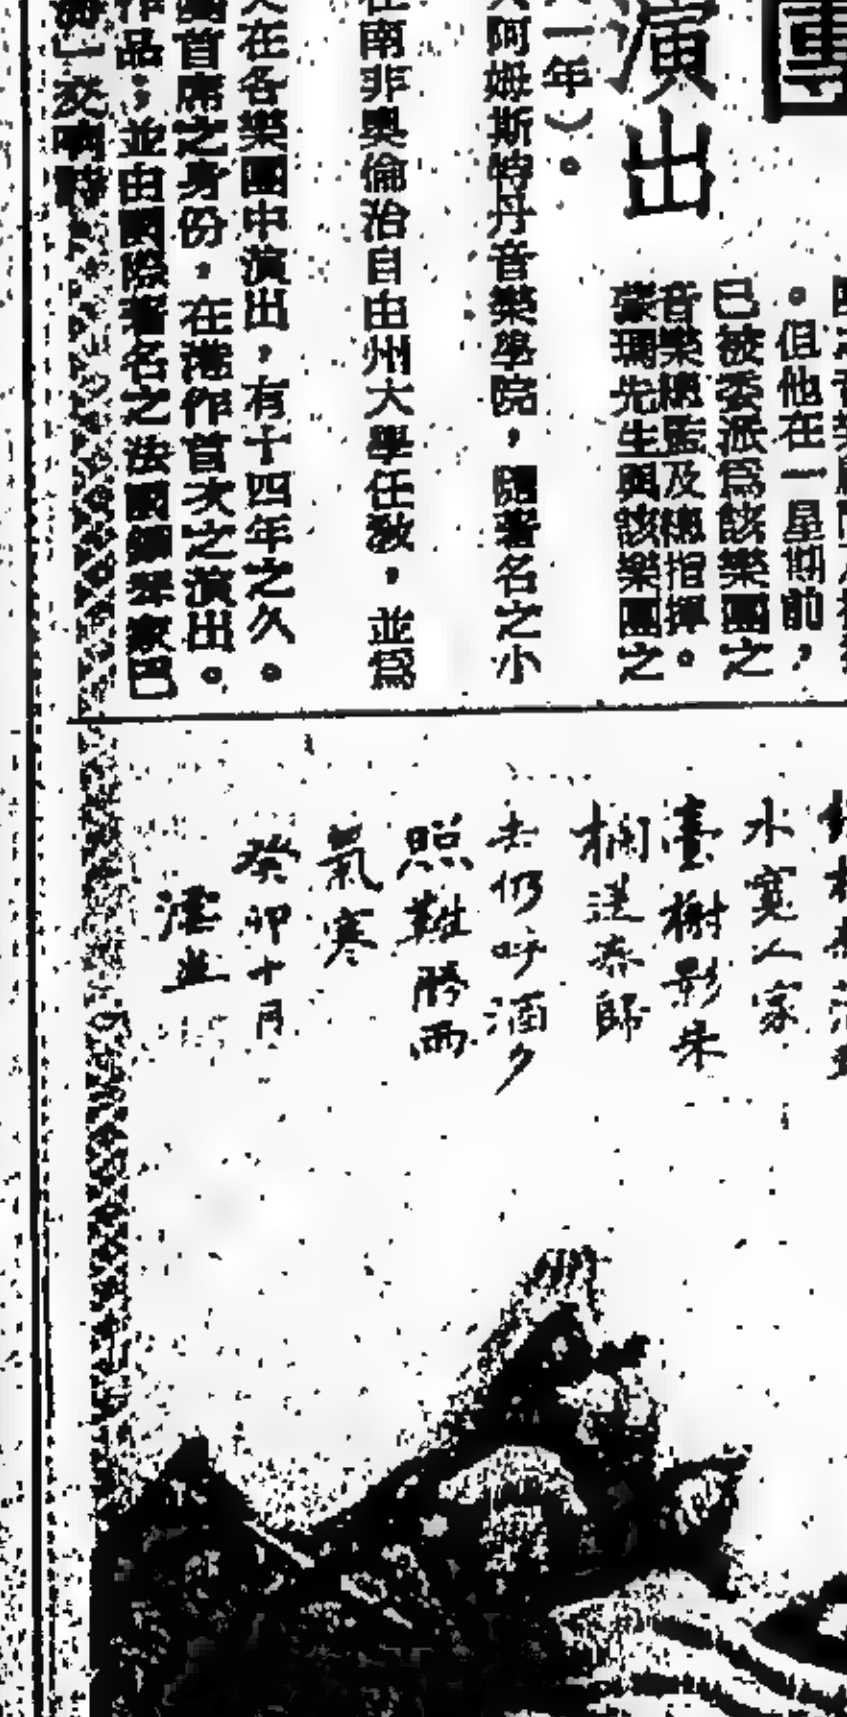 團
演出
。但他在一星期前，
已被委派為該樂團之
音樂總監及總指揮。
蒙瑪先生與該樂團之
一年）。
阿姆斯特丹音樂學院，隨著名之小
在南非奧倫治自由州大學任教，並為
在各樂團中演出，有十四年之久。
首席之身份，在港作首次之演出。
作品，並由國際著名之法國鋼琴家巴
交响詩
水寬人家
臺榭影朱
欄送春歸
去仍呼酒夕
照難勝雨
氣寒
癸卯十月